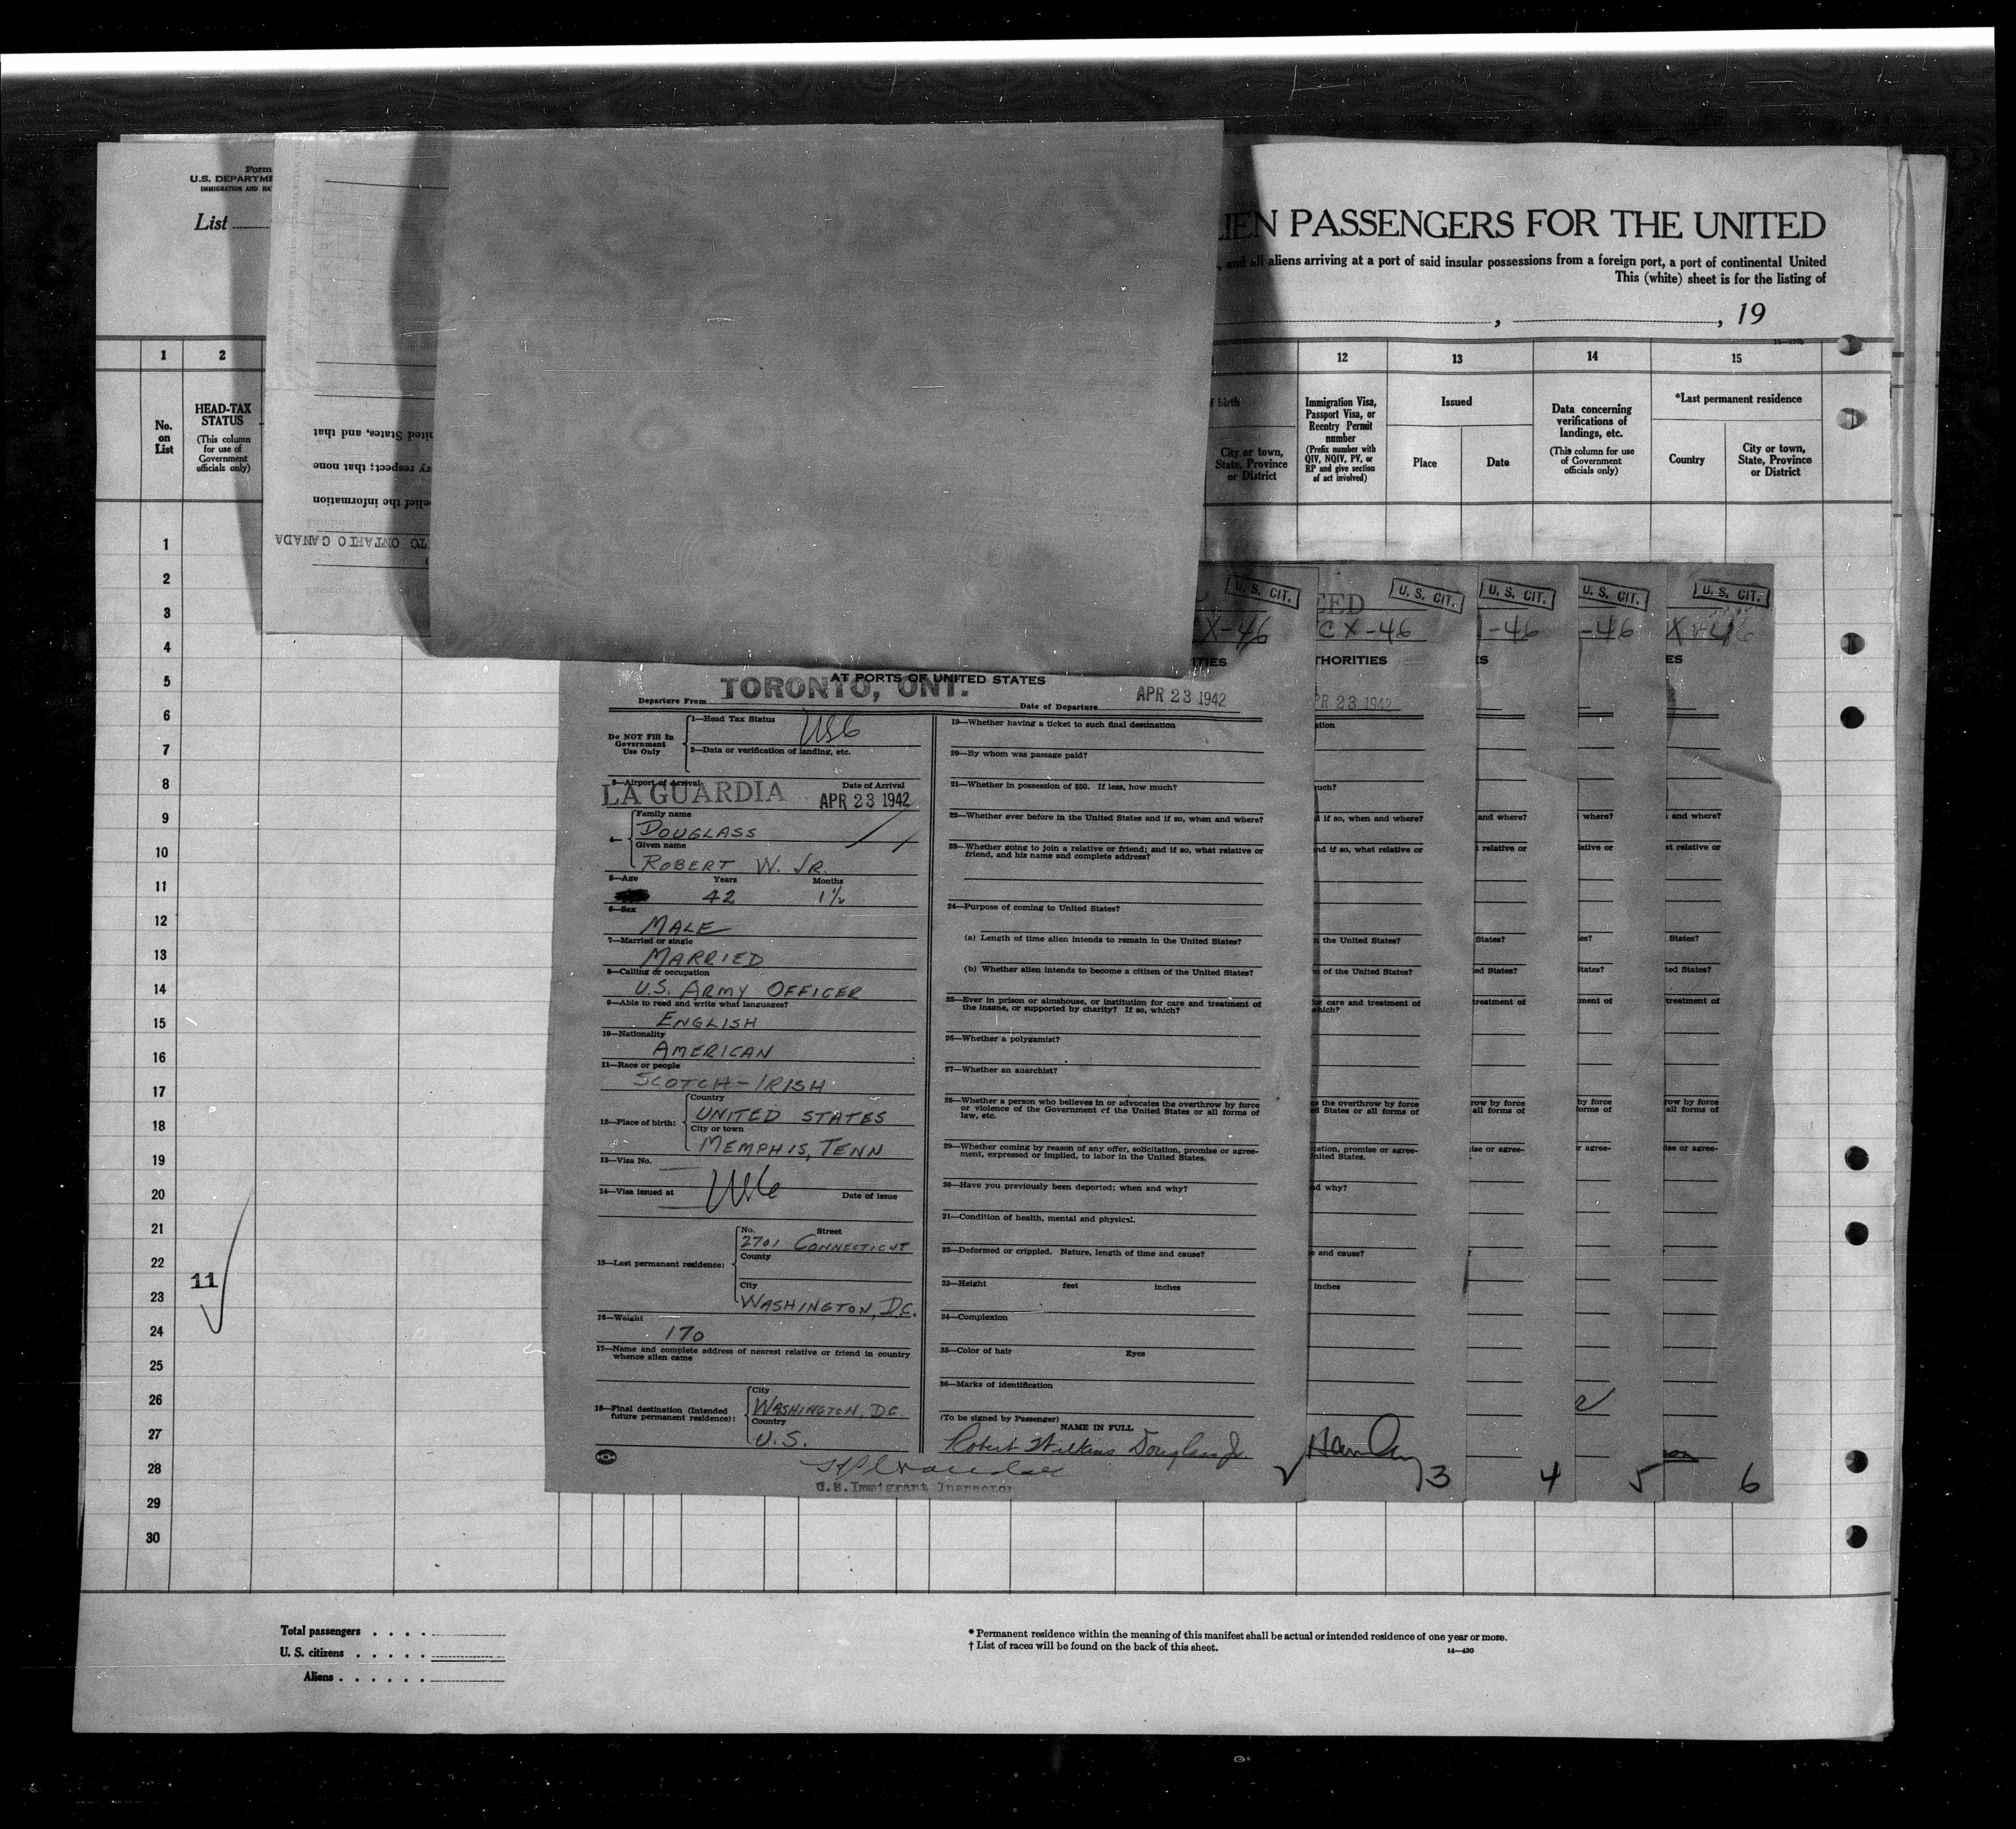 Form
U.S. DEPARTME
IMMIGRATION AND NA
List
LIEN PASSENGERS FOR THE UNITED
, and all aliens arriving at a port of said insular possessions from a foreign port, a port of continental United
This (white) sheet is for the listing of
, , 19
1 2
12 13 14 15
No. on List
HEAD-TAX STATUS
(This column for use of Government officials only)
f birth
City or town, State, Province or District
Immigration Visa, Passport Visa, or Reentry Permit number
(Prefix number with QIV, NQIV, PV, or RP and give section of act involved)
Issued
Place Date
Data concerning verifications of landings, etc.
(This column for use of Government officials only)
*Last permanent residence
Country
City or town, State, Province or District
nited States, and that
ry respect; that none
elief the information
TO ONTARIO CANADA
1
2
3
4
5
6
7
8
9
10
11
12
13
14
15
16
17
18
19
20
21
22
23
24
25
26
27
28
29
30
11
U. S. CIT.
X-46
ITIES
AT PORTS OF UNITED STATES
Departure From TORONTO, ONT.
Date of Departure APR 23 1942
Do NOT Fill In
Government
Use Only
1—Head Tax Status USC
2—Data or verification of landing, etc.
3—Airport of Arrival Date of Arrival
LA GUARDIA APR 23 1942
4—
Family name
DOUGLASS
Given name
ROBERT W. JR.
5—Age Years Months
42 1½
6—Sex
MALE
7—Married or single
MARRIED
8—Calling or occupation
U.S. ARMY OFFICER
9—Able to read and write what languages?
ENGLISH
10—Nationality
AMERICAN
11—Race or people
SCOTCH-IRISH
12—Place of birth:
Country
UNITED STATES
City or town
MEMPHIS, TENN
13—Visa No.
14—Visa issued at USC Date of issue
15—Last permanent residence:
No. Street
2701 CONNECTICUT
County
City
WASHINGTON, D.C.
16—Weight
170
17—Name and complete address of nearest relative or friend in country
whence alien came
18—Final destination (Intended
future permanent residence):
City
WASHINGTON, D.C.
Country
U.S.
19—Whether having a ticket to such final destination
20—By whom was passage paid?
21—Whether in possession of $50. If less, how much?
22—Whether ever before in the United States and if so, when and where?
23—Whether going to join a relative or friend; and if so, what relative or
friend, and his name and complete address?
24—Purpose of coming to United States?
(a) Length of time alien intends to remain in the United States?
(b) Whether alien intends to become a citizen of the United States?
25—Ever in prison or almshouse, or institution for care and treatment of
the insane, or supported by charity? If so, which?
26—Whether a polygamist?
27—Whether an anarchist?
28—Whether a person who believes in or advocates the overthrow by force
or violence of the Government of the United States or all forms of
law, etc.
29—Whether coming by reason of any offer, solicitation, promise or agree-
ment, expressed or implied, to labor in the United States.
30—Have you previously been deported; when and why?
31—Condition of health, mental and physical.
32—Deformed or crippled. Nature, length of time and cause?
33—Height feet inches
34—Complexion
35—Color of hair Eyes
36—Marks of identification
(To be signed by Passenger)
NAME IN FULL
Robert Wilkins Douglass Jr
U.S. Immigrant Inspector
U. S. CIT.
CX-46
THORITIES
PR 23 1942
ation
uch?
d if so, when and where?
nd if so, what relative or
n the United States?
n of the United States?
for care and treatment of
which?
s the overthrow by force
ed States or all forms of
itation, promise or agree-
nited States.
d why?
e and cause?
inches
3
U. S. CIT.
-46
ES
and where?
t relative or
States?
ted States?
treatment of
row by force
all forms of
ise or agree-
4
U. S. CIT.
-46
where?
lative or
es?
States?
ment of
by force
forms of
r agree-
5
U. S. CIT.
ES
and where?
at relative or
States?
ted States?
treatment of
row by force
all forms of
ise or agree-
6
Total passengers
U. S. citizens
Aliens
* Permanent residence within the meaning of this manifest shall be actual or intended residence of one year or more.
† List of races will be found on the back of this sheet.
14—430